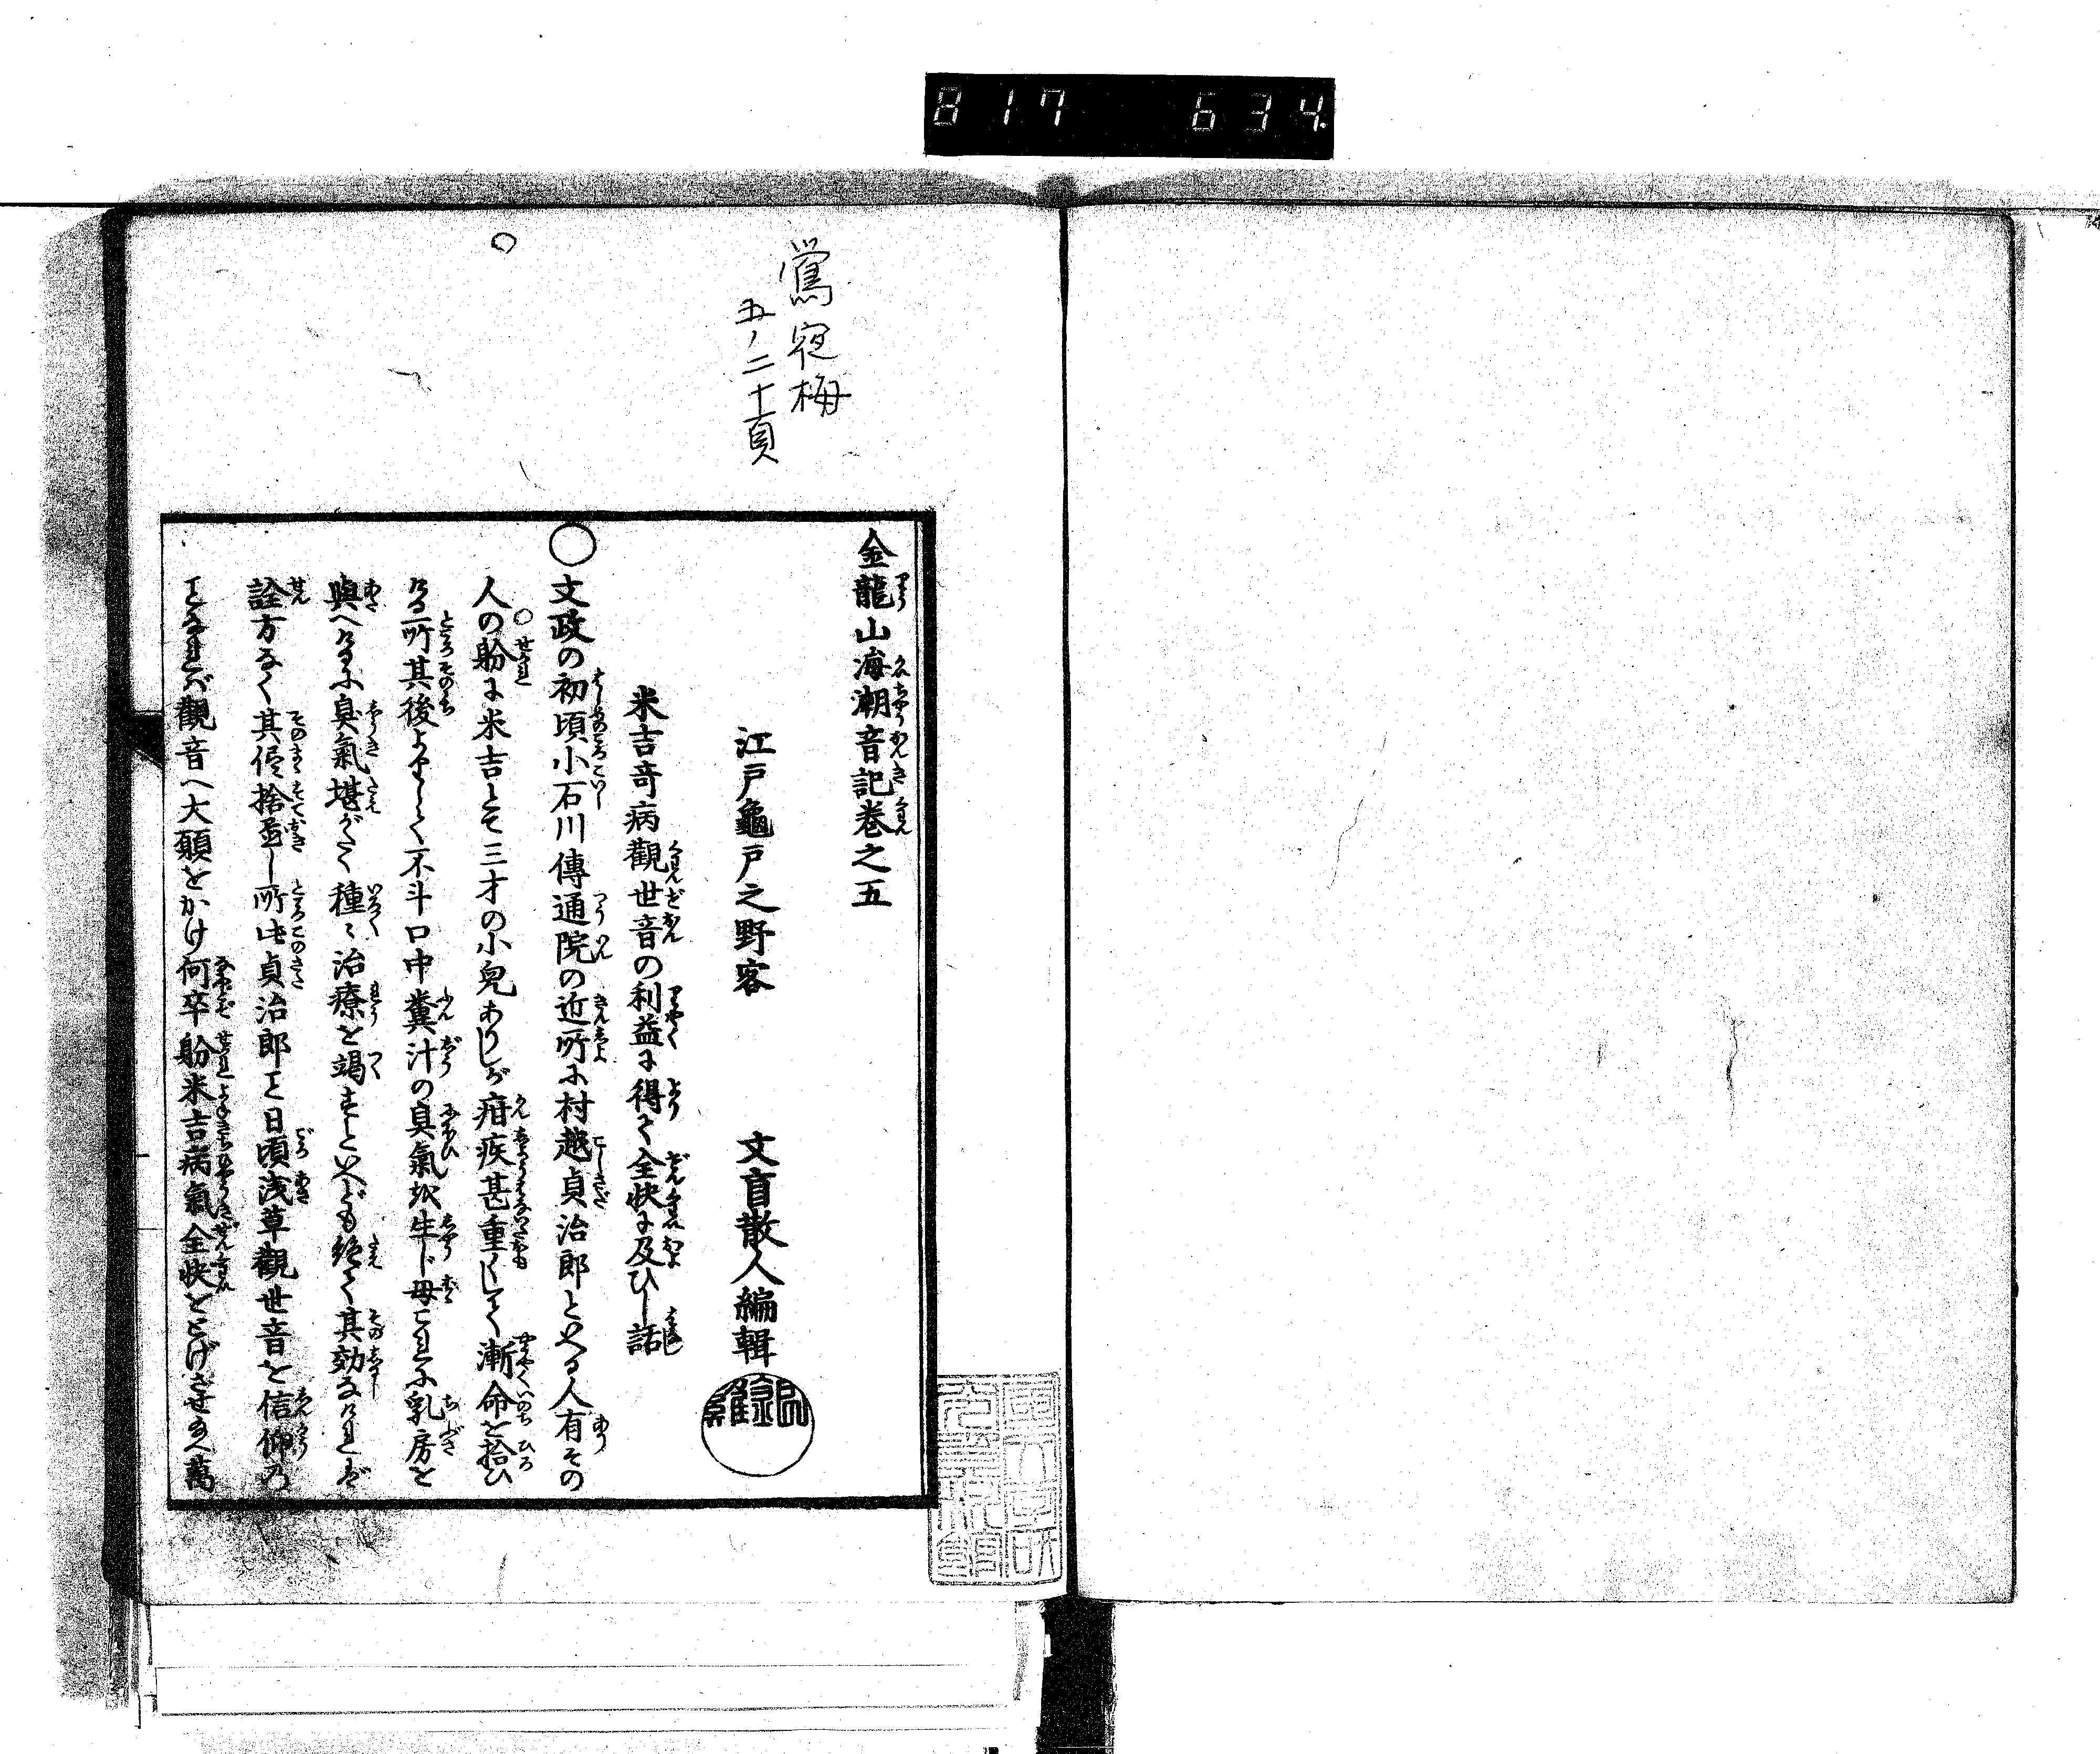 817 634
鶯宿梅
五ノ二十頁
金龍山海潮音記巻之五
江戸龜戸之野客 文盲散人編輯
米吉竒病觀世音の利益に得て全快に及ひし話
○文政の初頃小石川傳通院の近所に村越貞治郎といへる人有その
人の躮に米吉とて三才の小兒ありしが疳疾甚重くして漸命を拾ひ
ける所其後よりして不斗口中糞汁の臭氣を生じ母これに乳房を
與へけるに臭氣堪がたく種々治療を竭すといへども絶て其効なければ
詮方なく其侭捨置し所此貞治郎こと日頃浅草觀世音を信仰の
ことなれば觀音へ大願をかけ何卒躮米吉病氣全快をとげさせ給へ萬